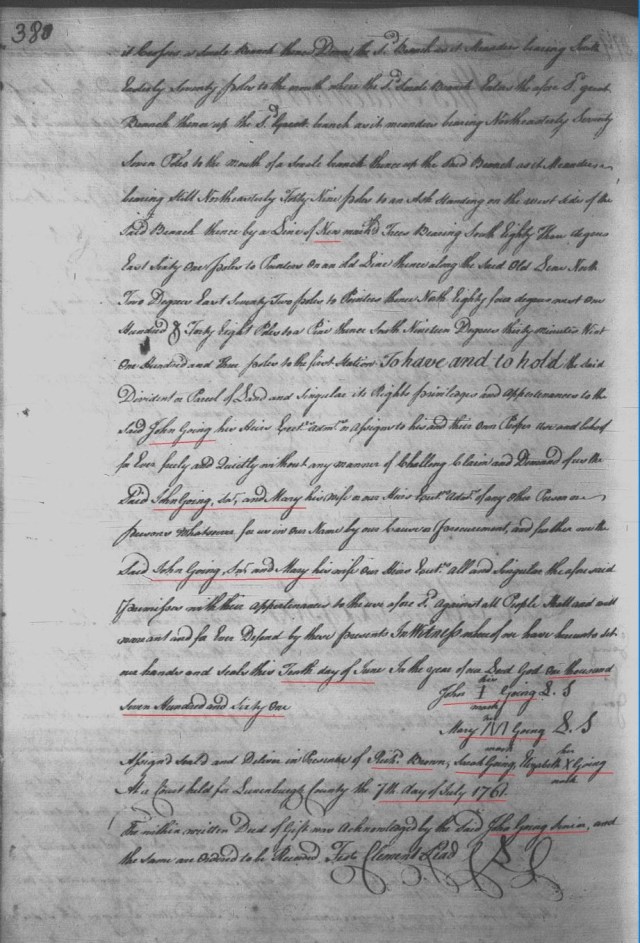 380
it Crosses a Small Branch thence Down the Sd. Branch as it Meanders bearing South
Easterly Seventy poles to the mouth where the Sd. Small Branch Enters the afore Sd. great
Branch thence up the Sd. Great branch as it meanders bearing Northeasterly Seventy
Seven Poles to the mouth of a Small branch thence up the Said Branch as it Meanders
bearing Still Northeasterly Fifty Nine poles to an Ash Standing on the west Side of the
Said Branch thence by a Line of New markd Trees Bearing South Eighty Three degrees
East Sixty One poles to Pointers on an old Line thence along the Said Old Line North
Two Degrees East Seventy Two poles to Pointers thence North Eighty four degrees west One
Hundred & Forty Eight Poles to a Pine thence South Nineteen Degrees thirty minutes West
One Hundred and three poles to the first Station To have and to hold the said
Divident or Parcel of Land and Singular its Rights priviledges and appertenances to the
Said John Going his Heirs Exectrs. Admrs. or Assigns to his and their Own Proper Use and behoof
for Ever freely and Quietly without any manner of Challeng Claim and Demand of us the
Said John Going, Senr. and Mary his wife or our Heirs Exectrs. Admrs. of any other Person or
persons whatsoever for us in our Name by our Cause or Procurement, and further we the
Said John Going, Senr. and Mary his wife our Heirs Exectrs. All and Singular the afore said
Premisses with their appertenances to the use afore Sd. Against all People Shall and will
warrant and for Ever Defend by these presents In Witness whereof we have hereunto set
our hands and seals this Tenth day of June In the year of our Lord God One thousand
Seven Hundred and Sixty One
John his I mark Going L. S
Mary her M mark Going L. S
Assign'd Seal'd and Deliver in Presents of Richd. Brown, Sarah Going, Elizabeth her X mark Going
At a Court held for Lunenburgh County the 7th day of July 1761
The within written Deed of Gift was Acknowledged by the Said John Going Senior, and
the same are Ordered to be Recorded Teste Clement Read